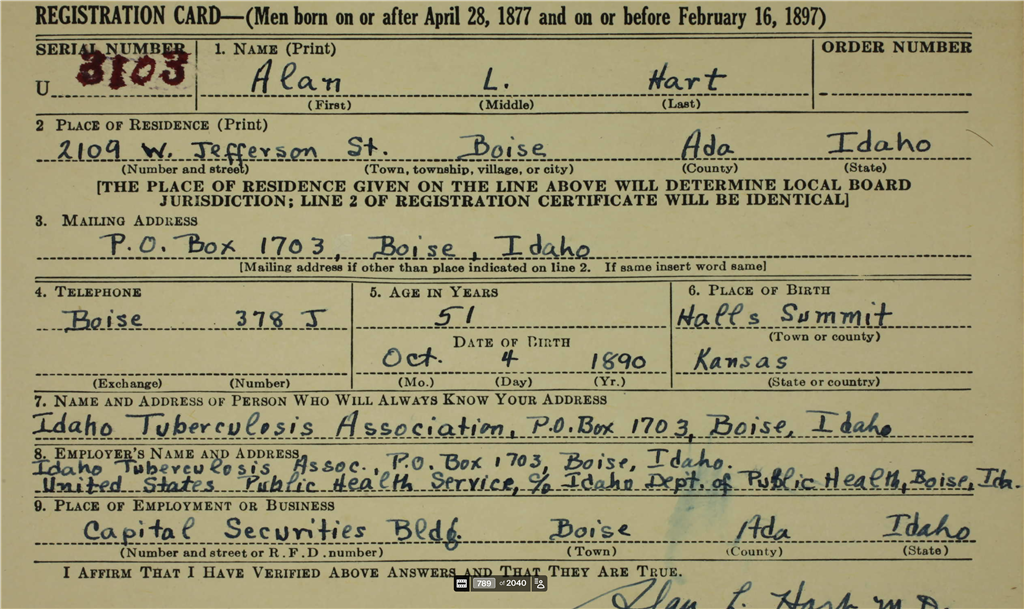 REGISTRATION CARD—(Men born on or after April 28, 1877 and on or before February 16, 1897)
SERIAL NUMBER 1. NAME (Print) ORDER NUMBER
U 3103 Alan L. Hart
(First) (Middle) (Last)
2 PLACE OF RESIDENCE (Print)
2109 W. Jefferson St. Boise Ada Idaho
(Number and street) (Town, township, village, or city) (County) (State)
[THE PLACE OF RESIDENCE GIVEN ON THE LINE ABOVE WILL DETERMINE LOCAL BOARD
JURISDICTION; LINE 2 OF REGISTRATION CERTIFICATE WILL BE IDENTICAL]
3. MAILING ADDRESS
P.O. Box 1703, Boise, Idaho
[Mailing address if other than place indicated on line 2. If same insert word same]
4. TELEPHONE 5. AGE IN YEARS 6. PLACE OF BIRTH
Boise 378 J 51 Halls Summit
DATE OF BIRTH (Town or county)
Oct. 4 1890 Kansas
(Exchange) (Number) (Mo.) (Day) (Yr.) (State or country)
7. NAME AND ADDRESS OF PERSON WHO WILL ALWAYS KNOW YOUR ADDRESS
Idaho Tuberculosis Association, P.O. Box 1703, Boise, Idaho
8. EMPLOYER'S NAME AND ADDRESS
Idaho Tuberculosis Assoc., P.O. Box 1703, Boise, Idaho.
United States Public Health Service, c/o Idaho Dept. of Public Health, Boise, Ida.
9. PLACE OF EMPLOYMENT OR BUSINESS
Capital Securities Bldg. Boise Ada Idaho
(Number and street or R. F. D. number) (Town) (County) (State)
I AFFIRM THAT I HAVE VERIFIED ABOVE ANSWERS AND THAT THEY ARE TRUE.
789 of 2040
Alan L. Hart M.D.